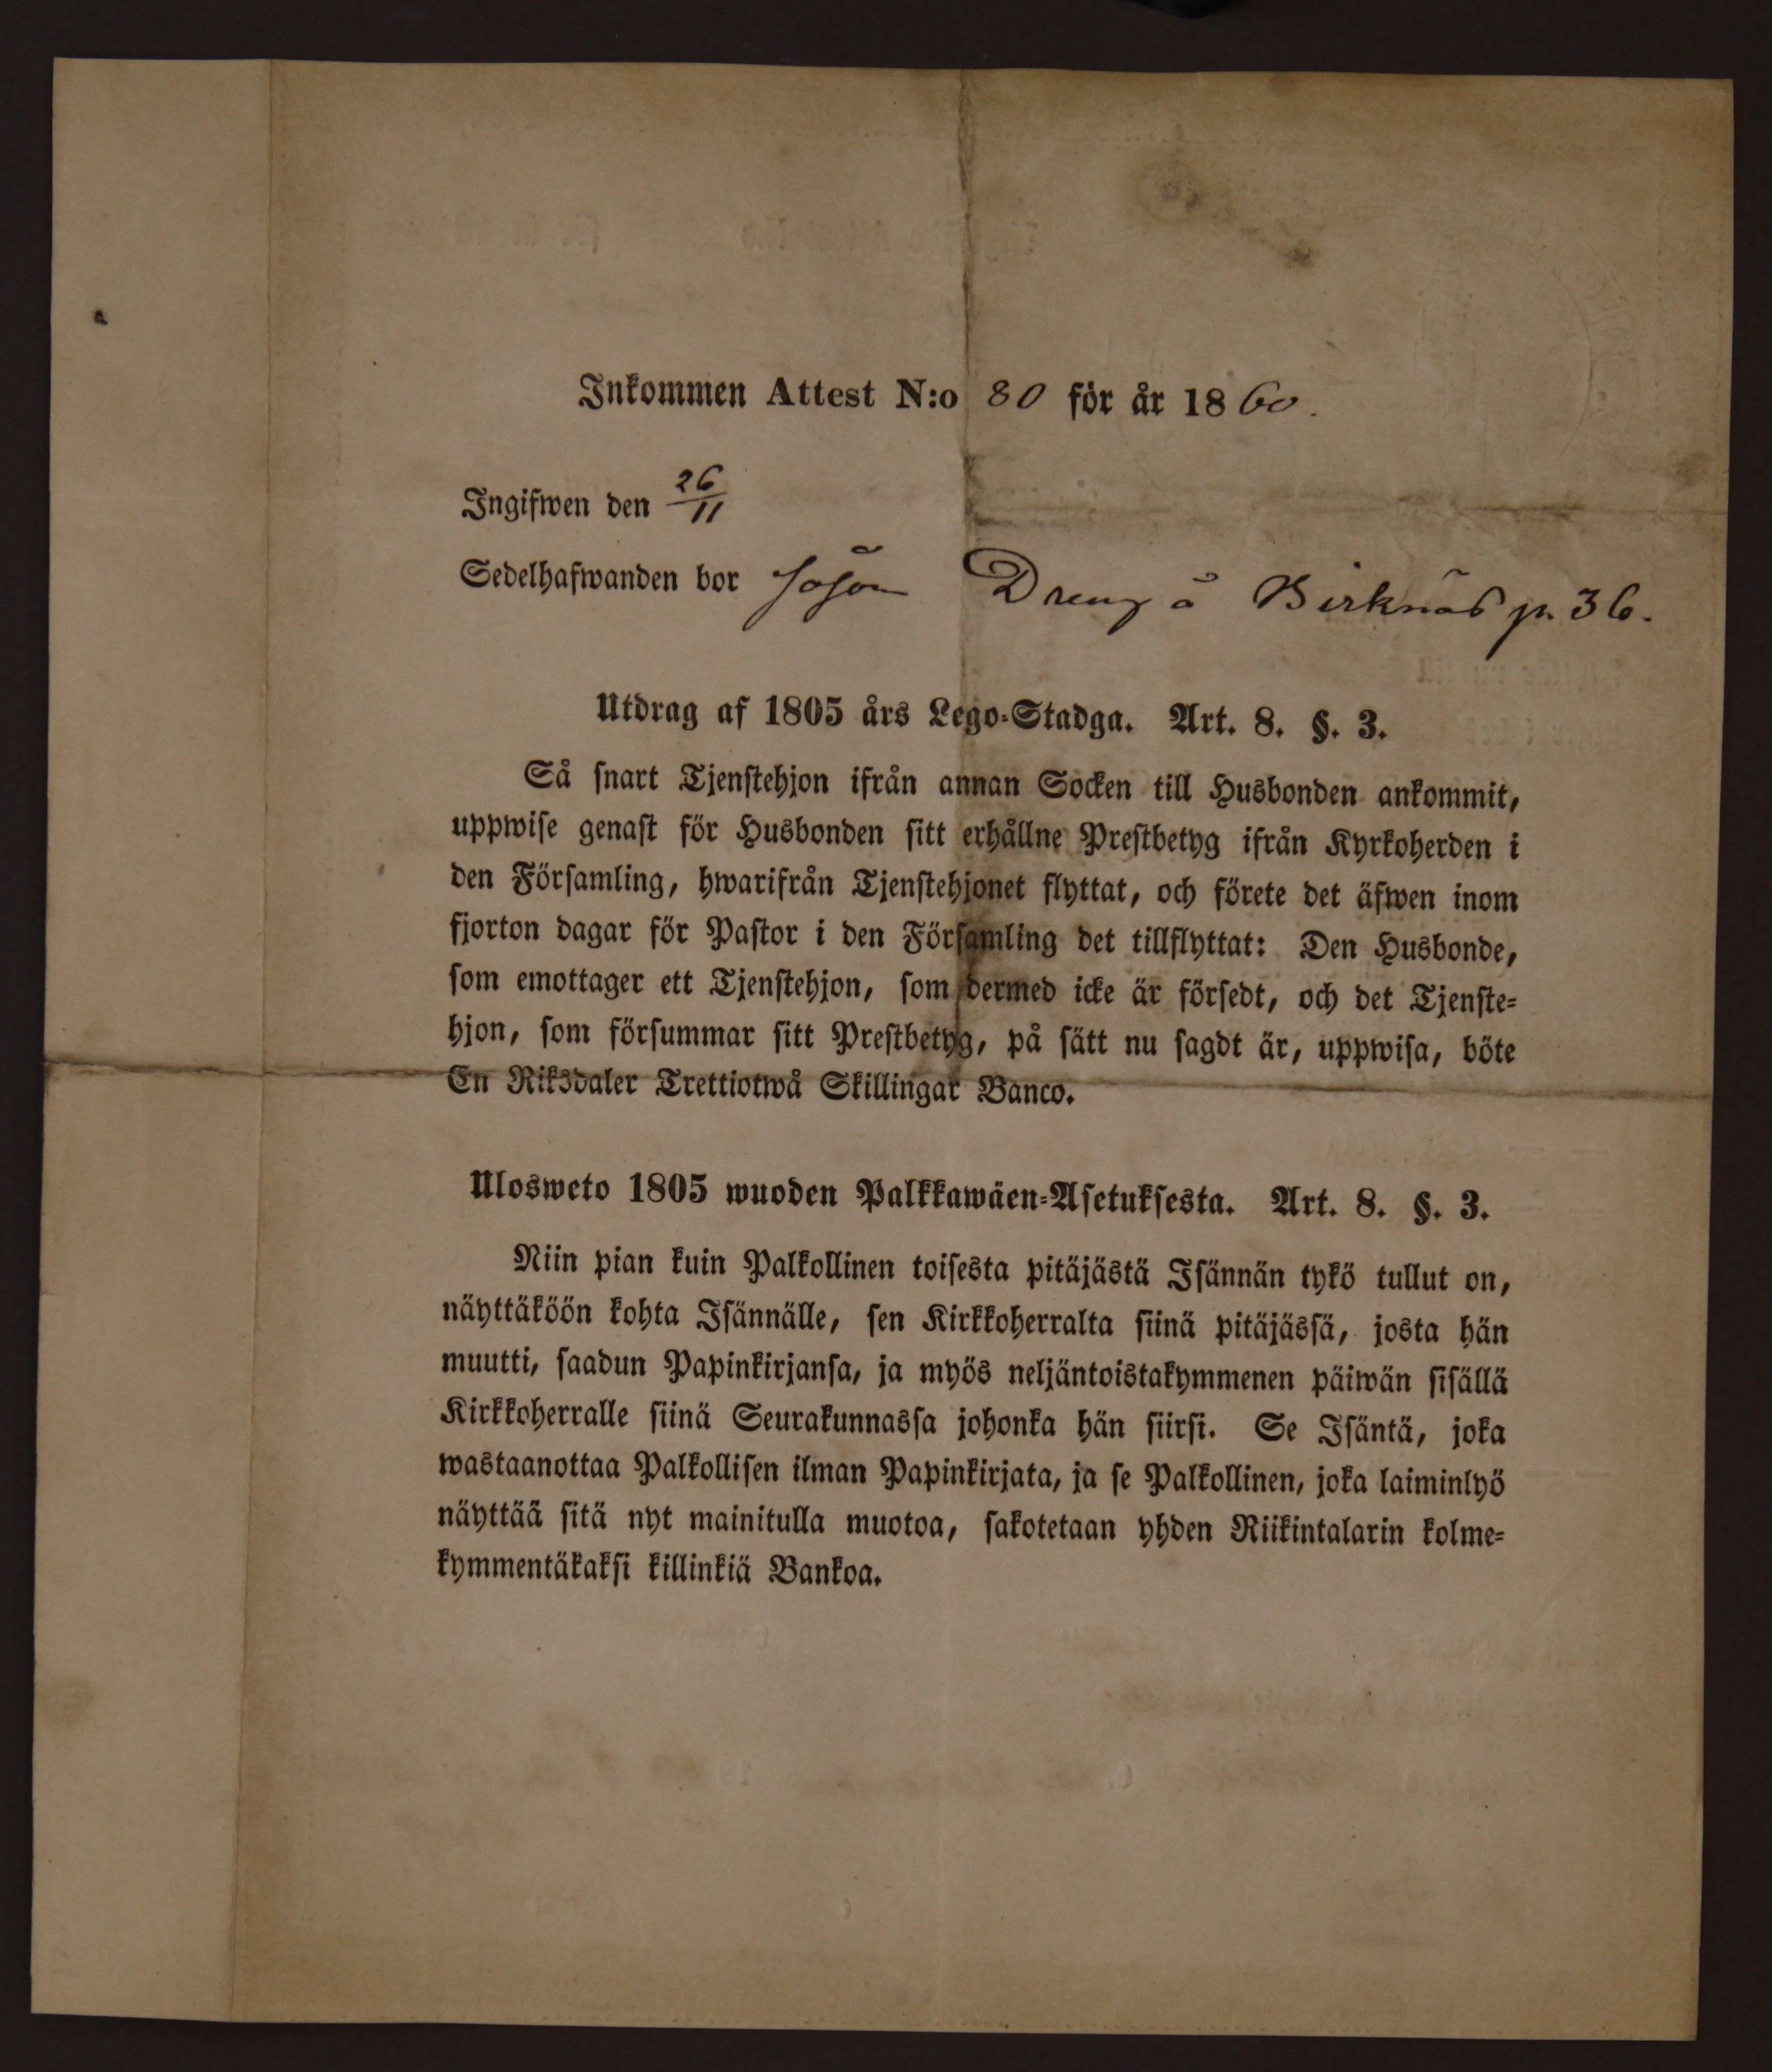 Inkommen Attest N:o 80 för år 1860.
Ingifwen den 26/11
Sedelhafwanden bor såsom Dreng å Birknäs p. 36.
Utdrag af 1805 års Lego-Stadga. Art. 8. §. 3.
Så snart Tjenstehjon ifrån annan Socken till Husbonden ankommit,
uppwise genast för Husbonden sitt erhållne Prestbetyg ifrån Kyrkoherden i
den Församling, hwarifrån Tjenstehjonet flyttat, och förete det äfwen inom
fjorton dagar för Pastor i den Församling det tillflyttat: Den Husbonde,
som emottager ett Tjenstehjon, som dermed icke är försedt, och det Tjenste-
hjon, som försummar sitt Prestbetyg, på sätt nu sagdt är, uppwisa, böte
En Riksdaler Trettiotwå Skillingar Banco.
Ulosweto 1805 wuoden Palkkawäen-Asetuksesta. Art. 8. §. 3.
Niin pian kuin Palkollinen toisesta pitäjästä Isännän tykö tullut on,
näyttäköön kohta Isännälle, sen Kirkkoherralta siinä pitäjässä, josta hän
muutti, saadun Papinkirjansa, ja myös neljäntoistakymmenen päiwän sisällä
Kirkkoherralle siinä Seurakunnassa johonka hän siirsi. Se Isäntä, joka
wastaanottaa Palkollisen ilman Papinkirjata, ja se Palkollinen, joka laiminlyö
näyttää sitä nyt mainitulla muotoa, sakotetaan yhden Riikintalarin kolme-
kymmentäkaksi killinkiä Bankoa.